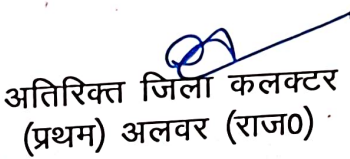 अतिरिक्त जिला कलक्टर
(प्रथम) अलवर (राज0)